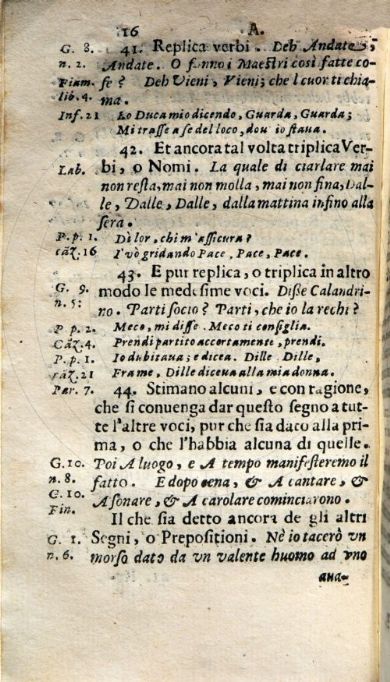 16 A.
G. 8. 41. Replica verbi. Deh Andate,
n. 2. Andate. O sono i Maestri così fatte co-
Fiam. se? Deh Vieni, Vieni; che l cuor ti chia-
lib. 4. ma.
Inf. 21 Lo Duca mio dicendo, Guarda, Guarda;
Mi trasse a se del loco, dou' io staua.
42. Et ancora tal volta triplica Ver-
Lab. bi, o Nomi. La quale di ciarlare mai
non resta, mai non molla, mai non fina, Dal-
le, Dalle, Dalle, dalla mattina infino alla
sera.
P. p. 1. Dì lor, chi m'assicura?
cāz. 16 I' vò gridando Pace, Pace, Pace.
43. E pur replica, o triplica in altro
G. 9. modo le medesime voci. Disse Calandri-
n. 5: no. Parti socio? Parti, che io la rechi?
P p. 2. Meco, mi disse. Meco ti consiglia.
Cāz. 4. Prendi partito accortamente, prendi.
P. p. 1. Io dubitaua; e dicea. Dille Dille,
cāz. 21 Frame, Dille diceua alla mia donna.
Par. 7. 44. Stimano alcuni, e con ragione,
che si conuenga dar questo segno a tut-
te l'altre voci, pur che sia dato alla pri-
ma, o che l'habbia alcuna di quelle.
G. 10. Poi A luogo, e A tempo manifesteremo il
n. 8. fatto. E dopo cena, & A cantare, &
G. 10. A sonare, & A carolare cominciarono.
Fin. Il che sia detto ancora de gli altri
G. 1. Segni, o Prepositioni. Nè io tacerò vn
n. 6. morso dato da vn valente huomo ad vno
aua-